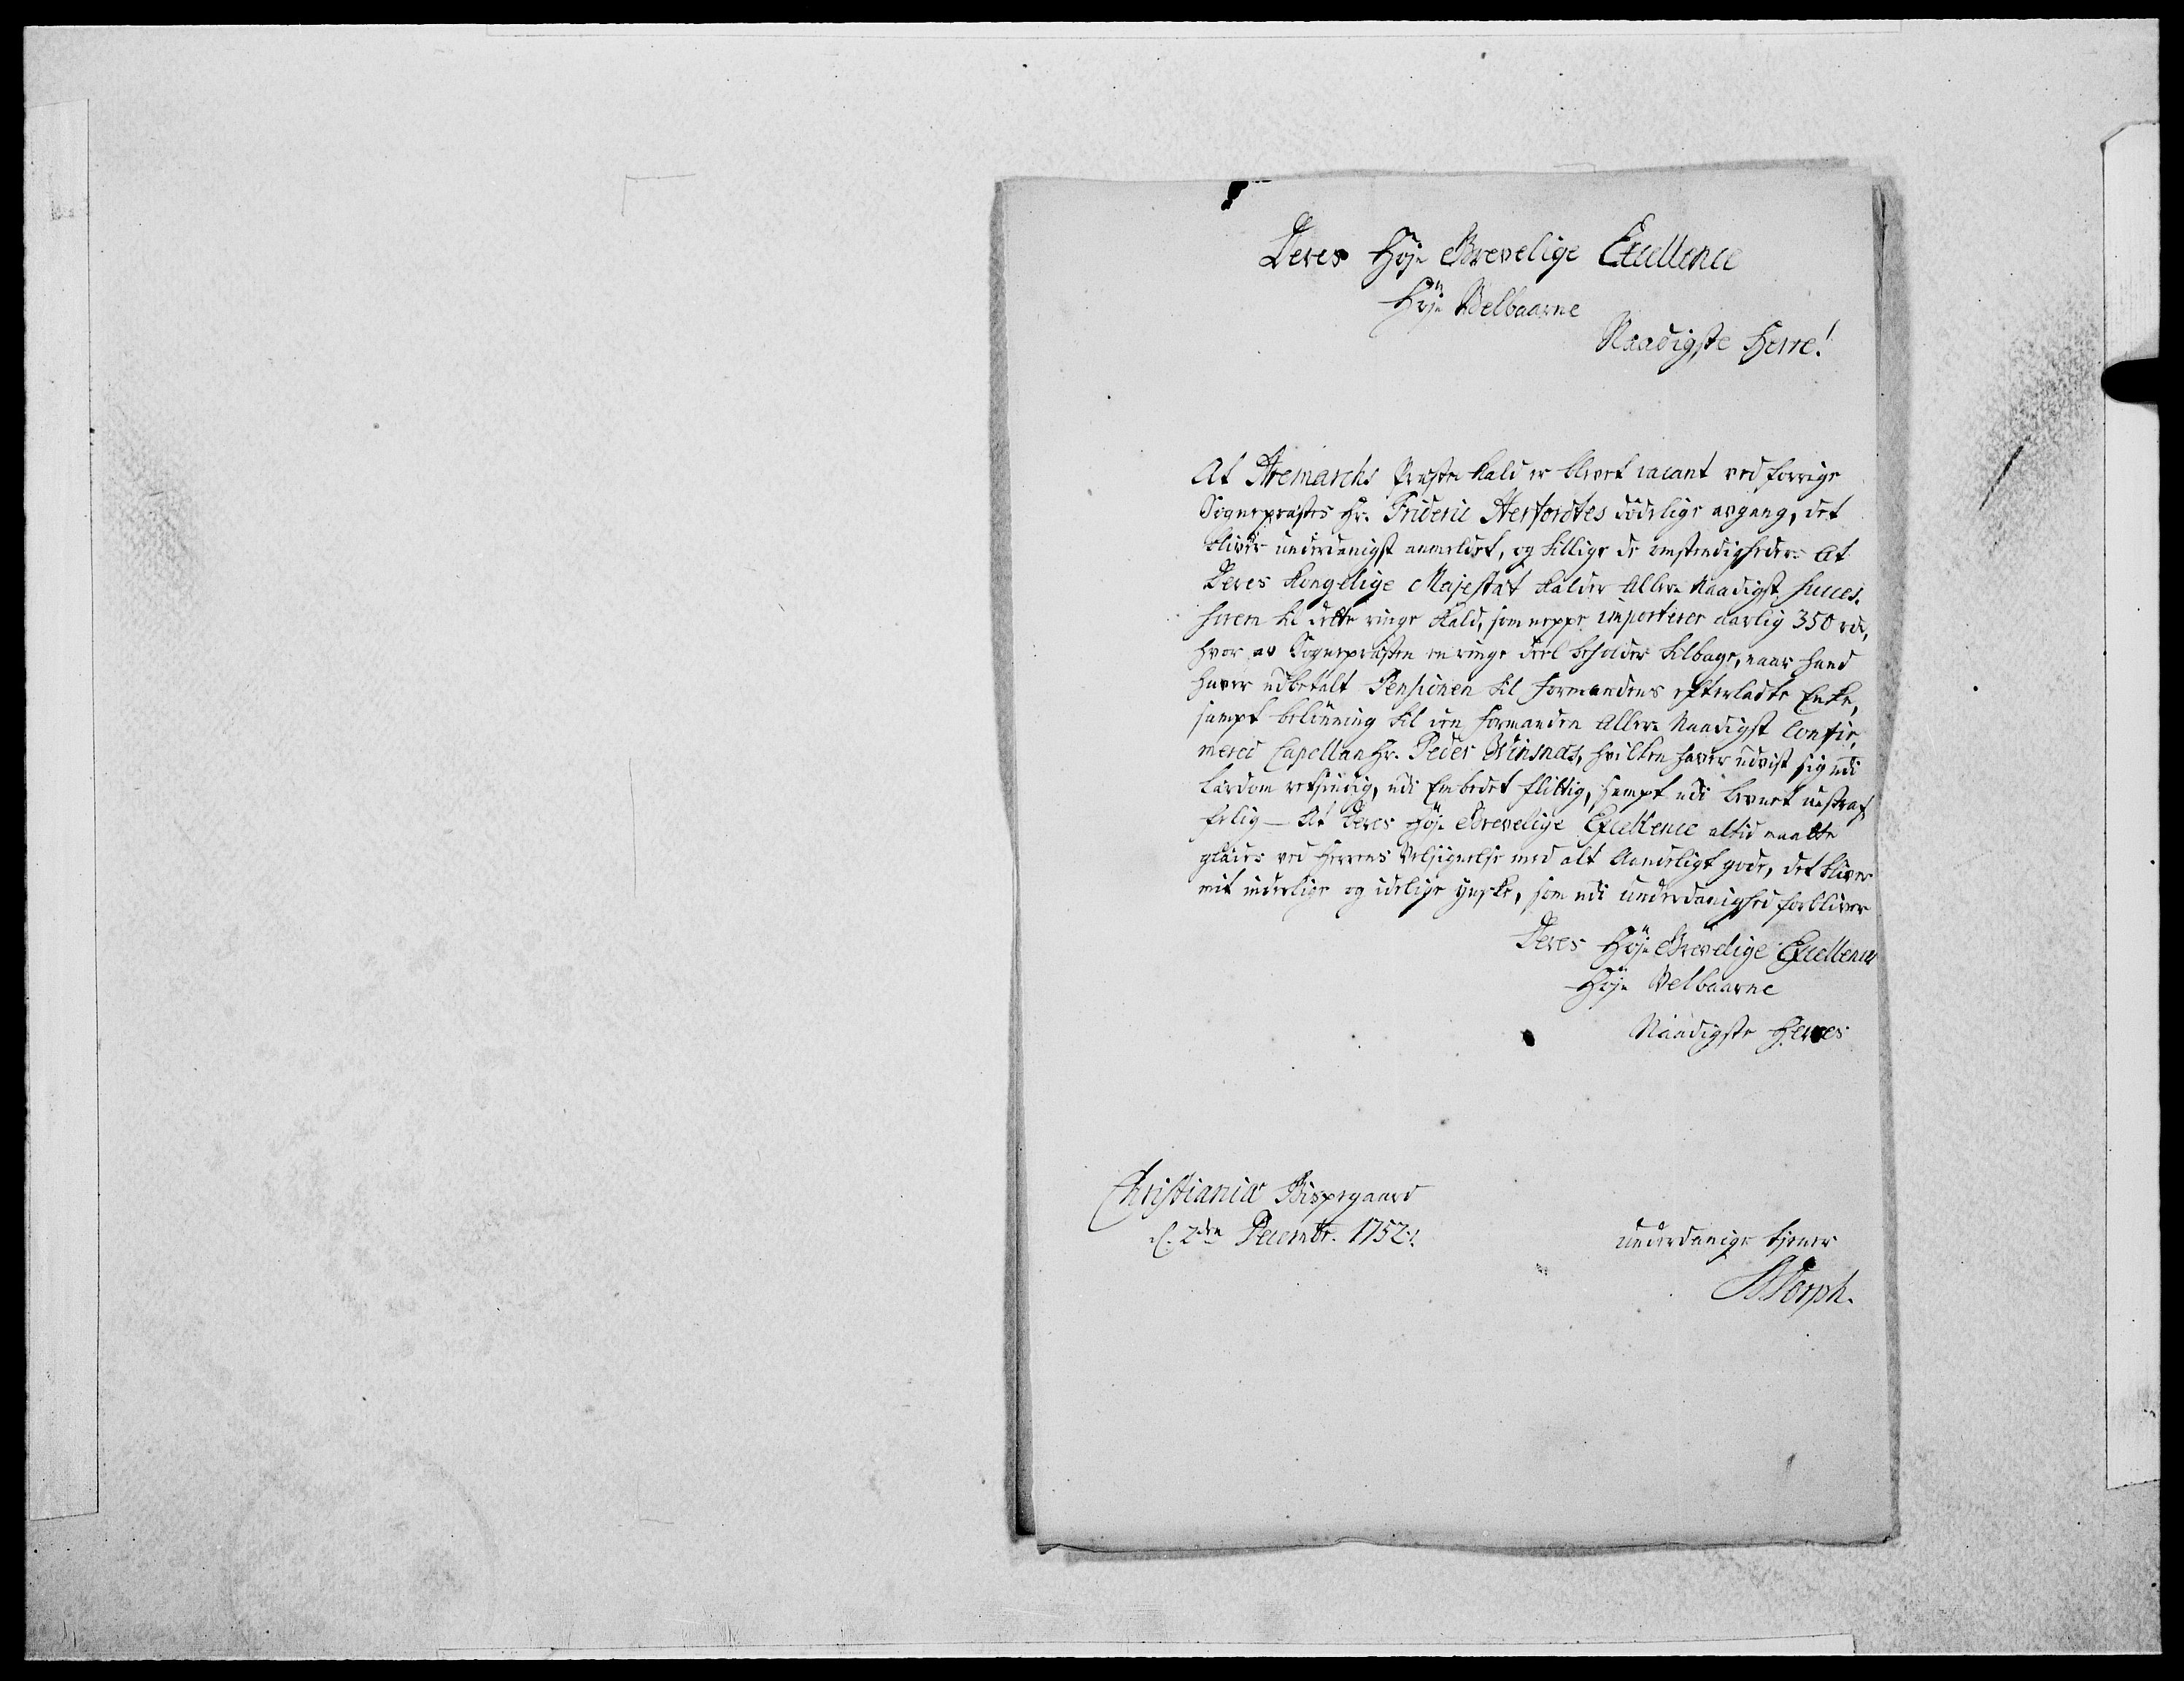 Deres Høje Grevelige Excellence
Høje Velbaarne
Naadigste Herre!
At Aremarchs Præste Kald er blevet vacant ved forrige
Sognepræstes Hr. Frideric Herfordtes dödelige avgang, det
bliver underdanigst anmeldet, og tillige de omstendigheder: At
Deres Kongelige Majestæt kalder Aller Naadigst succes¬
soren til dette ringe Kald, som neppe importerer aarlig 350 rdr,
hvor av Sognepræsten en ringe deel beholder tilbage, naar hand
haver udbetalt Pensionen til formandens efterladte Enke,
sampt belönning til den formanden Aller Naadigst Confir¬
mered Capellan Hr. Peder Winsnæs, hvilken haver udvist sig udi
lærdom retsindig, udi Embedet flittig, sampt udi levnet ustraf¬
felig — At Deres Høje Grevelige Excellence altid maatte
glædes ved Herrens Velsignelse med alt Aandeligt gode, det bliver
mit inderlige og idelige ynske, som udi underdanighed forbliver
Deres Høje Grevelige Excellences
Høje Velbaarne
Naadigste Herres
Christianiæ Bispegaard
d. 2den Decembr. 1752.
underdanige tjener
Dorph.